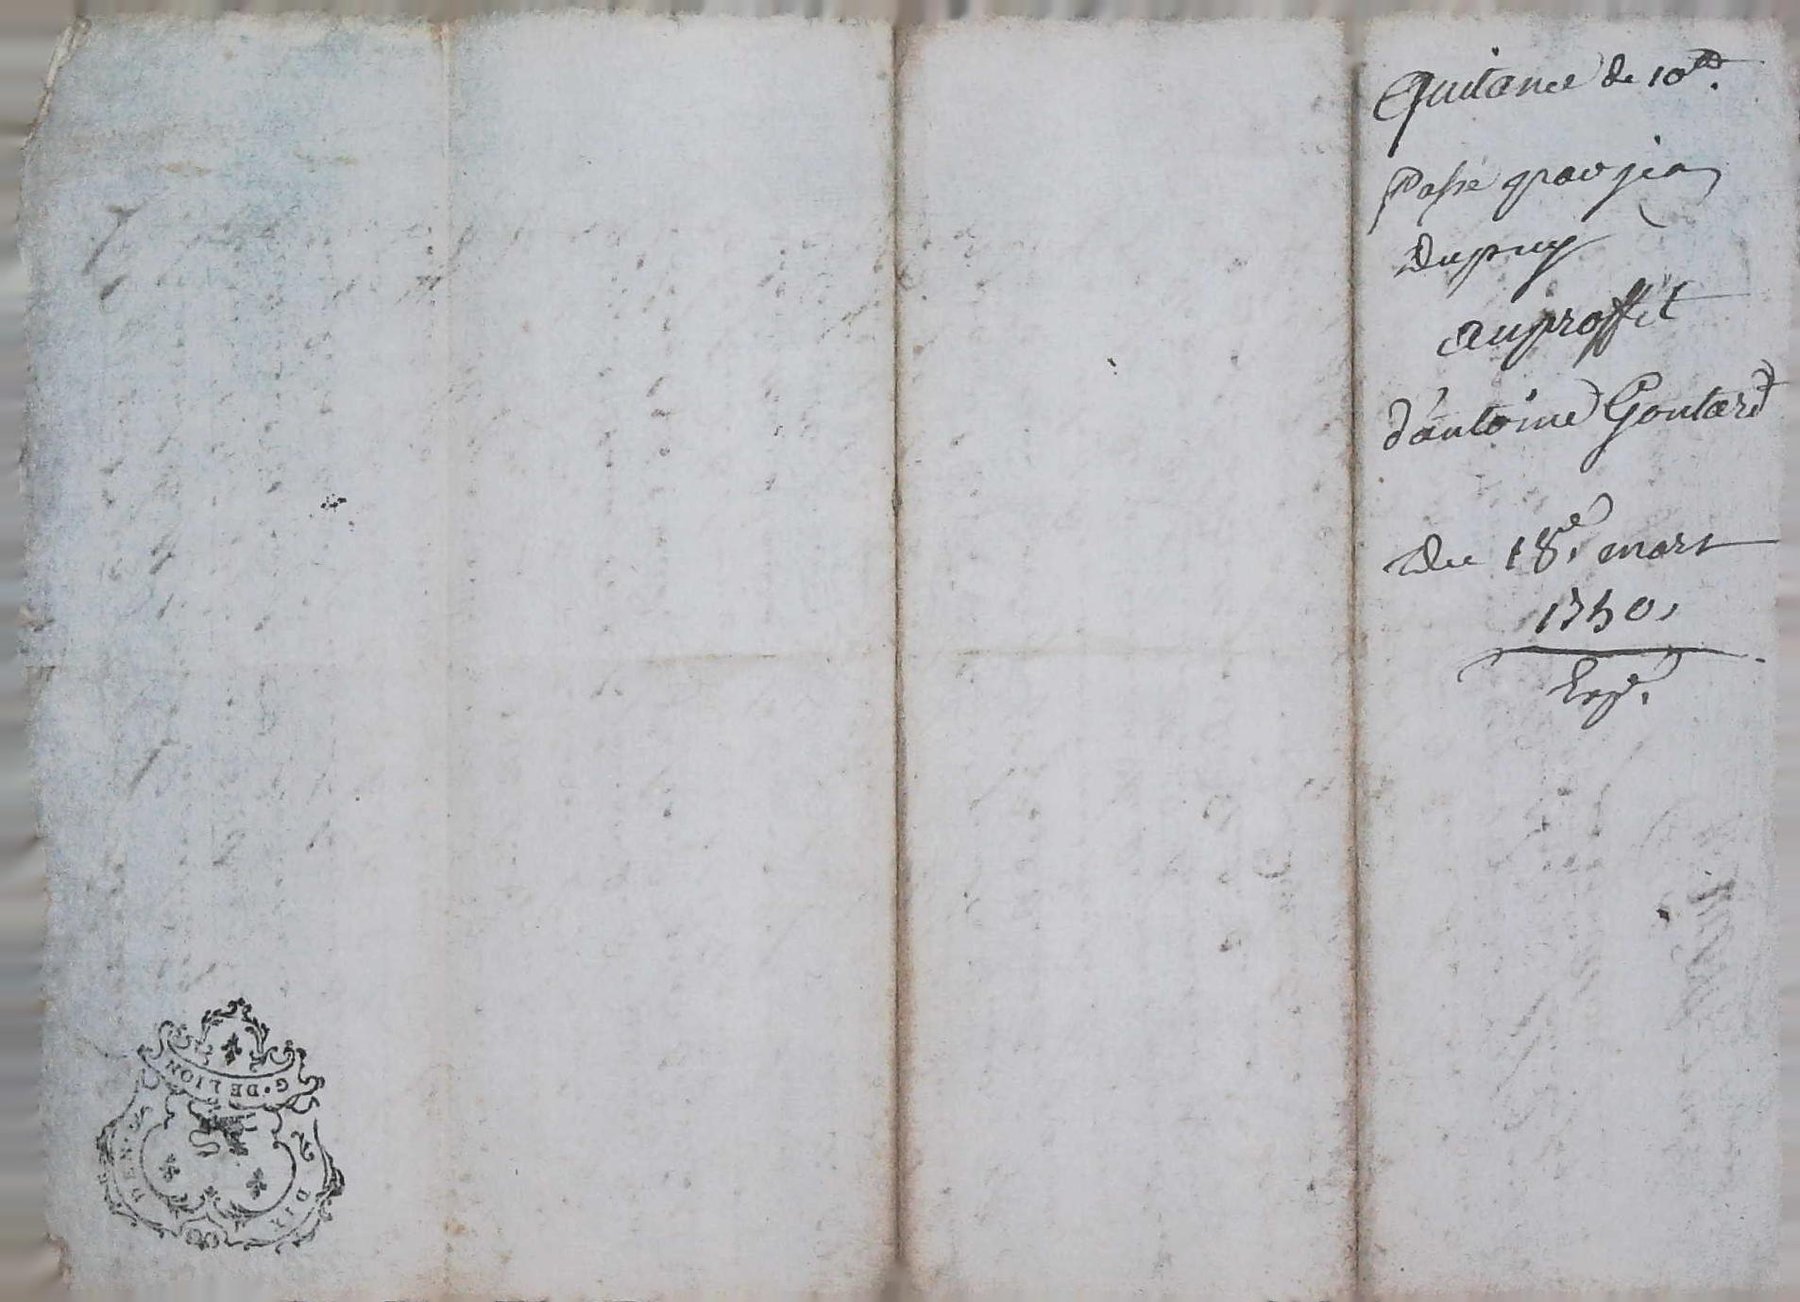 Quitance de 10ᵗᵗ.
Passé par jean
Dupuy
au proffit
d'antoine Goutard
Du 18ᵉ. mars
1750,
Expᵉ.
G. DE LION
DIX DEN.